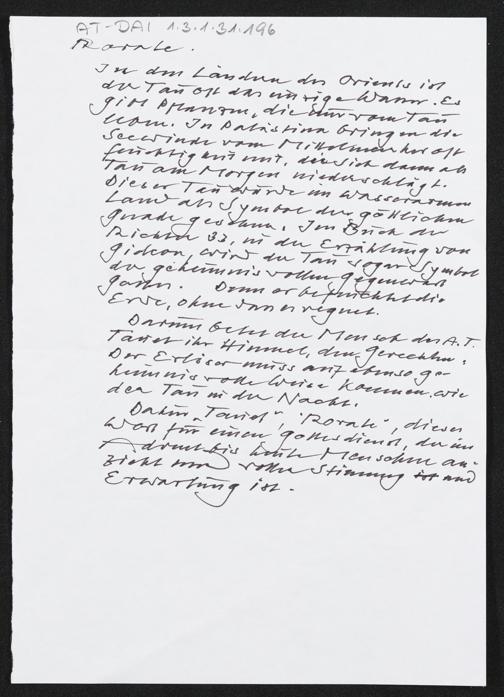 AT-DAI 1.3.1.31.196
Rorate.
In den Ländern des Orients ist
der Tau oft das einzige Wasser. Es
gibt Pflanzen, die nur vom Tau
leben. In Palästina bringen die
Seewinde vom Mittelmeer her oft
Feuchtigkeit mit, die sich dann als
Tau am Morgen niederschlägt.
Dieser Tau wurde im wasserarmen
Land als Symbol der göttlichen
Gnade gesehen. Im Buch der
Richter 33, in der Erzählung von
Gideon, wird der Tau sogar Symbol
der geheimnisvollen Gegenwart
Gottes. Denn er befeuchtet die
Erde, ohne dass es regnet.
Darum betet der Mensch des A.T.
Tauet ihr Himmel, den Gerechten.
Der Erlöser muss auf ebenso ge-
heimnisvolle Weise kommen, wie
der Tau in der Nacht.
Dahin „Tauet", „Rorate", dieses
Wort für einen Gottesdienst, der im
Advent bis heute Menschen an-
zieht und voller Stimmung ist und
Erwartung ist.